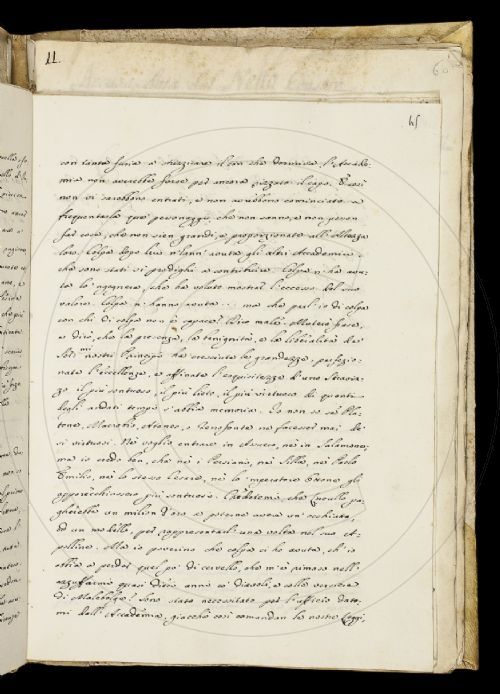 11.
45
con tanta furia a stuzzicare il can che dormiva l'Accade-
mia non averebbe forse per ancora rizzato il capo. E così
non vi sarebbono entrati, e non avrebbono cominciato a
frequentarla que' personaggi che non sanno, e non posson
far cose, che non sien grandi, e proporzionate all'Altezza
loro. Colpa dopo loro n'hann'avuta gli altri Accademici
che sono stati sì prodighi a contribuire. Colpa n'ha avu-
ta lo 'ngegnere, che ha voluto mostrar l'eccesso del suo
valore. Colpa n'hanno avuta ... ma che parl'io di colpa
con chi di colpa non è capace? Dico male. Muterò frase,
e dirò, che la presenza, la benignità, e la liberalità de'
Ser.mi nostri Principi ha cresciuto la grandezza, perfezio-
nato l'eccellenza, e affinato l'esquisitezza d'uno Stravi-
zzo il più sontuoso, il più lieto, il più virtuoso di quanti
degli andati tempi s'abbia memoria. Io non so se Pla-
tone, Macrobio, Ateneo, o Senofonte ne facesser mai de'
sì virtuosi. Nè voglio entrare in Assuero, nè in Salamone,
ma io credo ben, che nè i Persiani, nè Silla, nè Paolo
Emilio, nè lo stesso Cesare, nè lo 'mperatore Ottone gli
apparecchiassero più sontuosi. Credetemi, che Lucullo pa-
gherebbe un milion d'oro a poterne avere un'occhiata,
ed un modello, per rappresentarli una volta nel suo A-
polline. Ma io poverino che colpa ci ho avuta, ch'io
abbia a perder quel po' di cervello, che m'è rimaso nell'
azzuffarmi quasi dieci anni co' diavoli, e colla versiera
di Malebolge? Sono stato necessitato per l'uffizio dato-
mi dell'Accademia, giacchè così comandan le nostre Leggi,